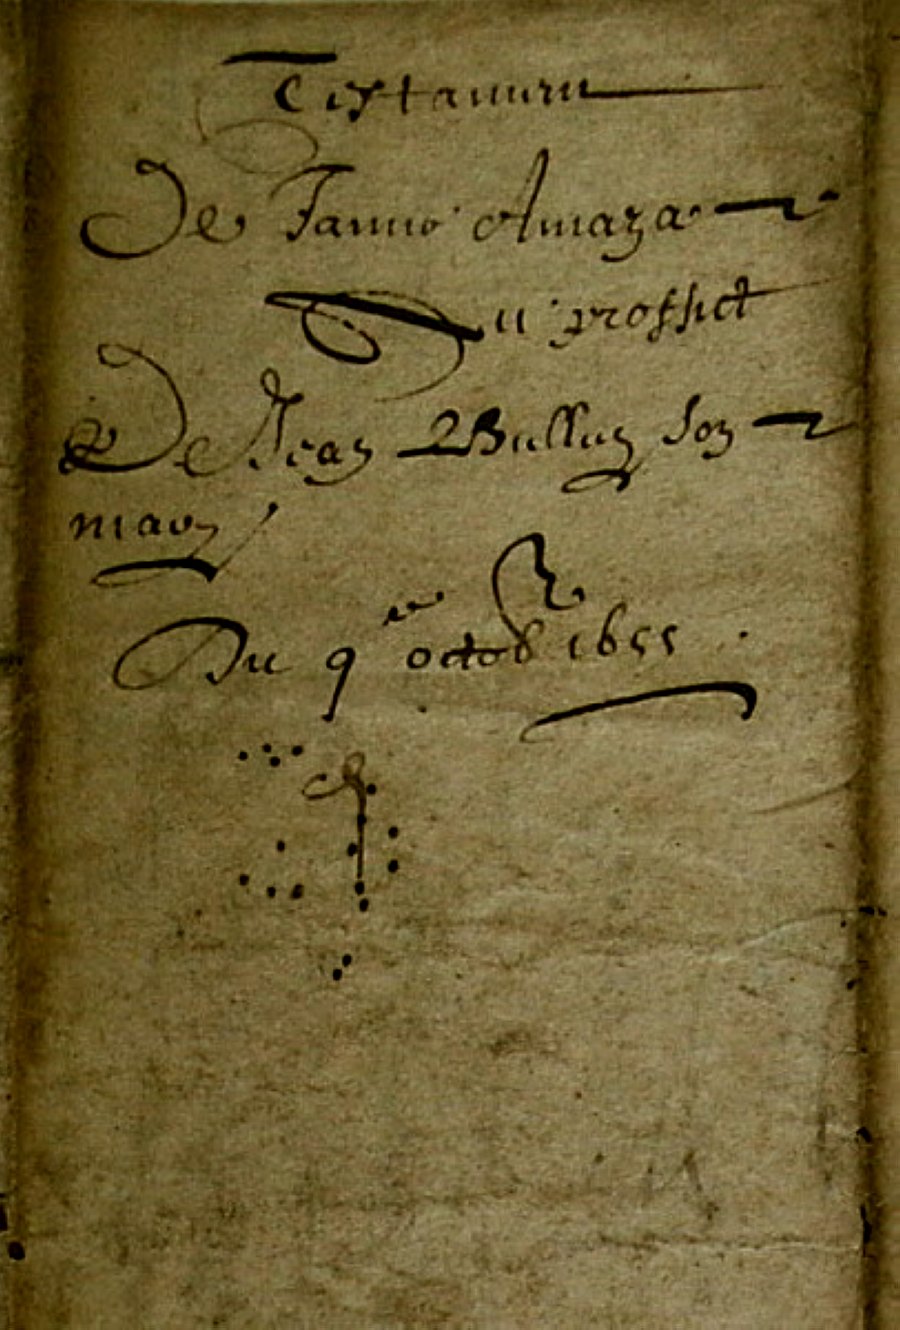 Testament
De Janne Amaza
Au proffict
De Jean Bullug son
mary
Du 9e octob 1655